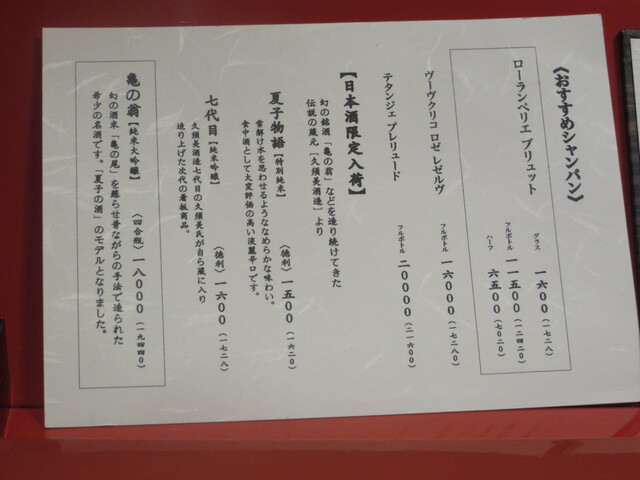 《おすすめシャンパン》
ローランペリエ ブリュット
グラス 一六〇〇（一七二八）
フルボトル 一一五〇〇（一二四二〇）
ハーフ 六五〇〇（七〇二〇）
ヴーヴクリコ ロゼ レゼルヴ
フルボトル 一六〇〇〇（一七二八〇）
テタンジェ プレリュード
フルボトル 二〇〇〇〇（二一六〇〇）
【日本酒限定入荷】
幻の銘酒「亀の翁」などを造り続けてきた
伝説の蔵元〔久須美酒造〕より
夏子物語【特別純米】〈徳利〉一五〇〇（一六二〇）
雪解け水を思わせるようななめらかな味わい。
食中酒として大変評価の高い淡麗辛口です。
七代目【純米吟醸】〈徳利〉一六〇〇（一七二八）
久須美酒造七代目の久須美氏が自ら蔵に入り
造り上げた次代の看板商品。
亀の翁【純米大吟醸】〈四合瓶〉一八〇〇〇（一九四四〇）
幻の酒米「亀の尾」を蘇らせ昔ながらの手法で造られた
希少の名酒です。「夏子の酒」のモデルとなりました。